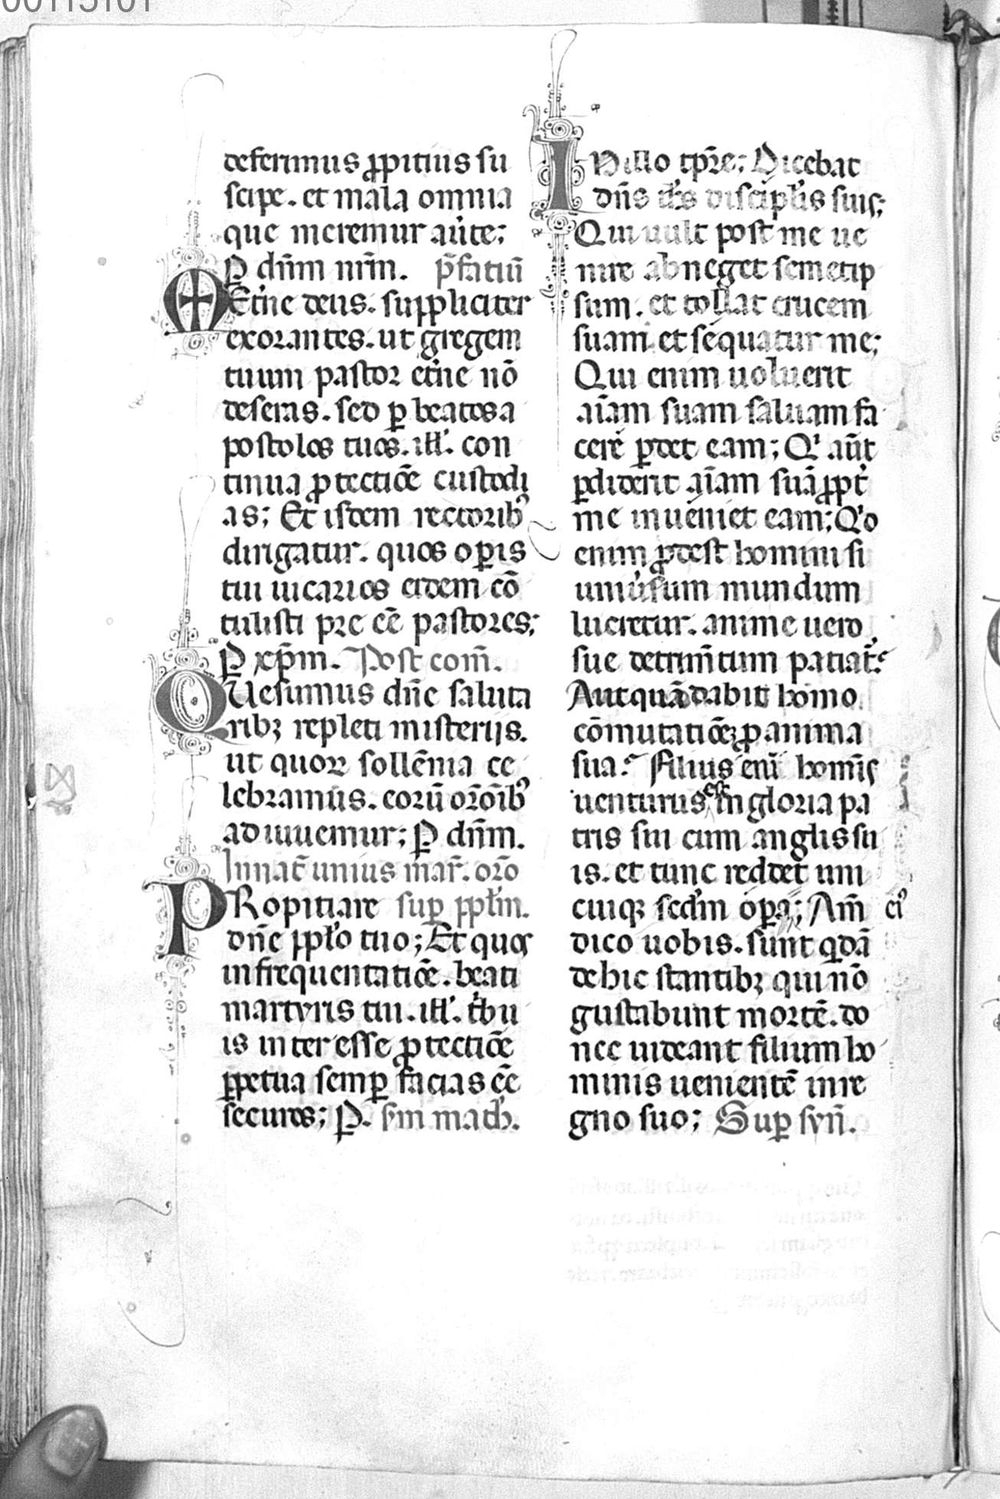 00115101
deferimus ꝓpitius su
scipe. et mala omnia
que meremur au̾te;
P dn̄m nr̄m. p̄fatiū
Et̾ne deus. suppliciter
exorantes. ut gregem
tuum pastor et̾ne nō
deseras. sed ꝑ beatos a
postolos tuos. ill̾. con
tinua ꝓtectiōe custodi
as; Et isdem rectorib᾿
dirigatur. quos oꝑis
tui uicarios eidem cō
tulisti pre eē pastores;
P xp̄m. Post com̄.
Quesumus dn̄e saluta
ribꝫ repleti misteriis.
ut quoꝝ sollēnia ce
lebramus. eorū orōib᾿
adiuuemur; P dn̄m.
In nat̄ unius mar̄. orō
Propitiare suꝑ ppl̄m.
dn̄e ppl̄o tuo; Et quos
in frequentatiōe. beati
martyris tui. ill̾. t̾bu
is interesse ꝓtectiōe
ꝑpetua semꝑ facias eē
securos; P. sm̄ math̄.
In illo tp̄re; Dicebat
dn̄s ih̄s discipl̄is suis;
Qui uult post me ue
nire abneget semetip
sum. et tollat crucem
suam et sequatur me;
Qui enim uoluerit
aīam suam saluam fa
cere ꝑdet eam; Q̾ aūt
ꝑdiderit aīam suā ꝓpt̾
me inueniet eam; Q̾d
enim ꝓdest homini si
uniu̾sum mundum
lucretur. anime uero
sue detrim̄tum patiat̾?
Aut quā dabit homo
cōmutatiōeꝫ ꝓ anima
sua? Filius enī homīs
uenturus est in gloria pa
tris sui cum anglis su
is. et tunc reddet uni
cuiqꝫ secd̄m oꝑa ei᾿; Am̄
dico uobis. sunt q̇dā
de hic stantibꝫ qui nō
gustabunt mortē. do
nec uideant filium ho
minis uenientē in re
gno suo; Suꝑ syn̄.